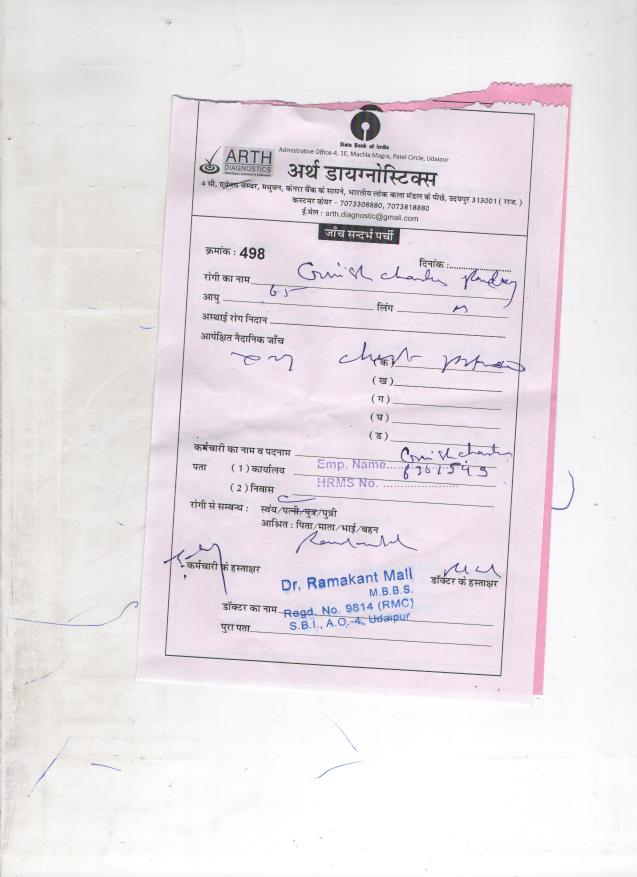 State Bank of India
Admistrative Office-4, 1E, Machla Magra, Patel Circle, Udaipur
ARTH
DIAGNOSTICS
अर्थ डायग्नोस्टिक्स
4 सी, एपेक्स चेम्बर, मधुवन, केनरा बैंक के सामने, भारतीय लोक कला मंडल के पीछे, उदयपुर 313001 ( राज. )
कस्टमर केयर - 7073308880, 7073818880
ई.मेल : arth.diagnostic@gmail.com
जाँच सन्दर्भ पर्ची
क्रमांक : 498
दिनांक :
रोगी का नाम
आयु 65 लिंग M
अस्थाई रोग निदान
आपेक्षित नैदानिक जाँच
chest
( क )
( ख )
( ग )
( घ )
( ड )
कर्मचारी का नाम व पदनाम
पता ( 1 ) कार्यालय Emp. Name
HRMS No.
( 2 ) निवास
रोगी से सम्बन्ध : स्वंय/पत्नी/पुत्र/पुत्री
आश्रित : पिता/माता/भाई/बहन
कर्मचारी के हस्ताक्षर डॉक्टर के हस्ताक्षर
Dr. Ramakant Mali
M.B.B.S.
डॉक्टर का नाम Regd. No. 9814 (RMC)
S.B.I., A.O.-4, Udaipur
पुरा पता